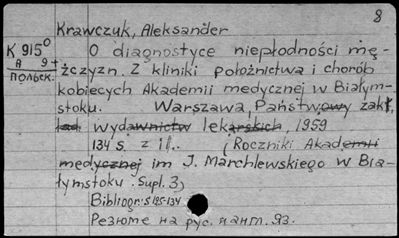 8
Krawczuk, Aleksander
K 915⁰ O diagnostyce niepłodności mę-
A 9+ żczyzn. Z kliniki położnictwa i chorób
ПОЛЬСК. kobiecych Akademii medycznej w Białym-
stoku. Warszawa, Państwowy zakł.
wydawnictw lekarskich, 1959
134 s. z il. (Roczniki Akademii
medycznej im J. Marchlewskiego w Bia-
łymstoku. Supl. 3)
Bibliogr: s 125-134
Резюме на рус. и англ. яз.